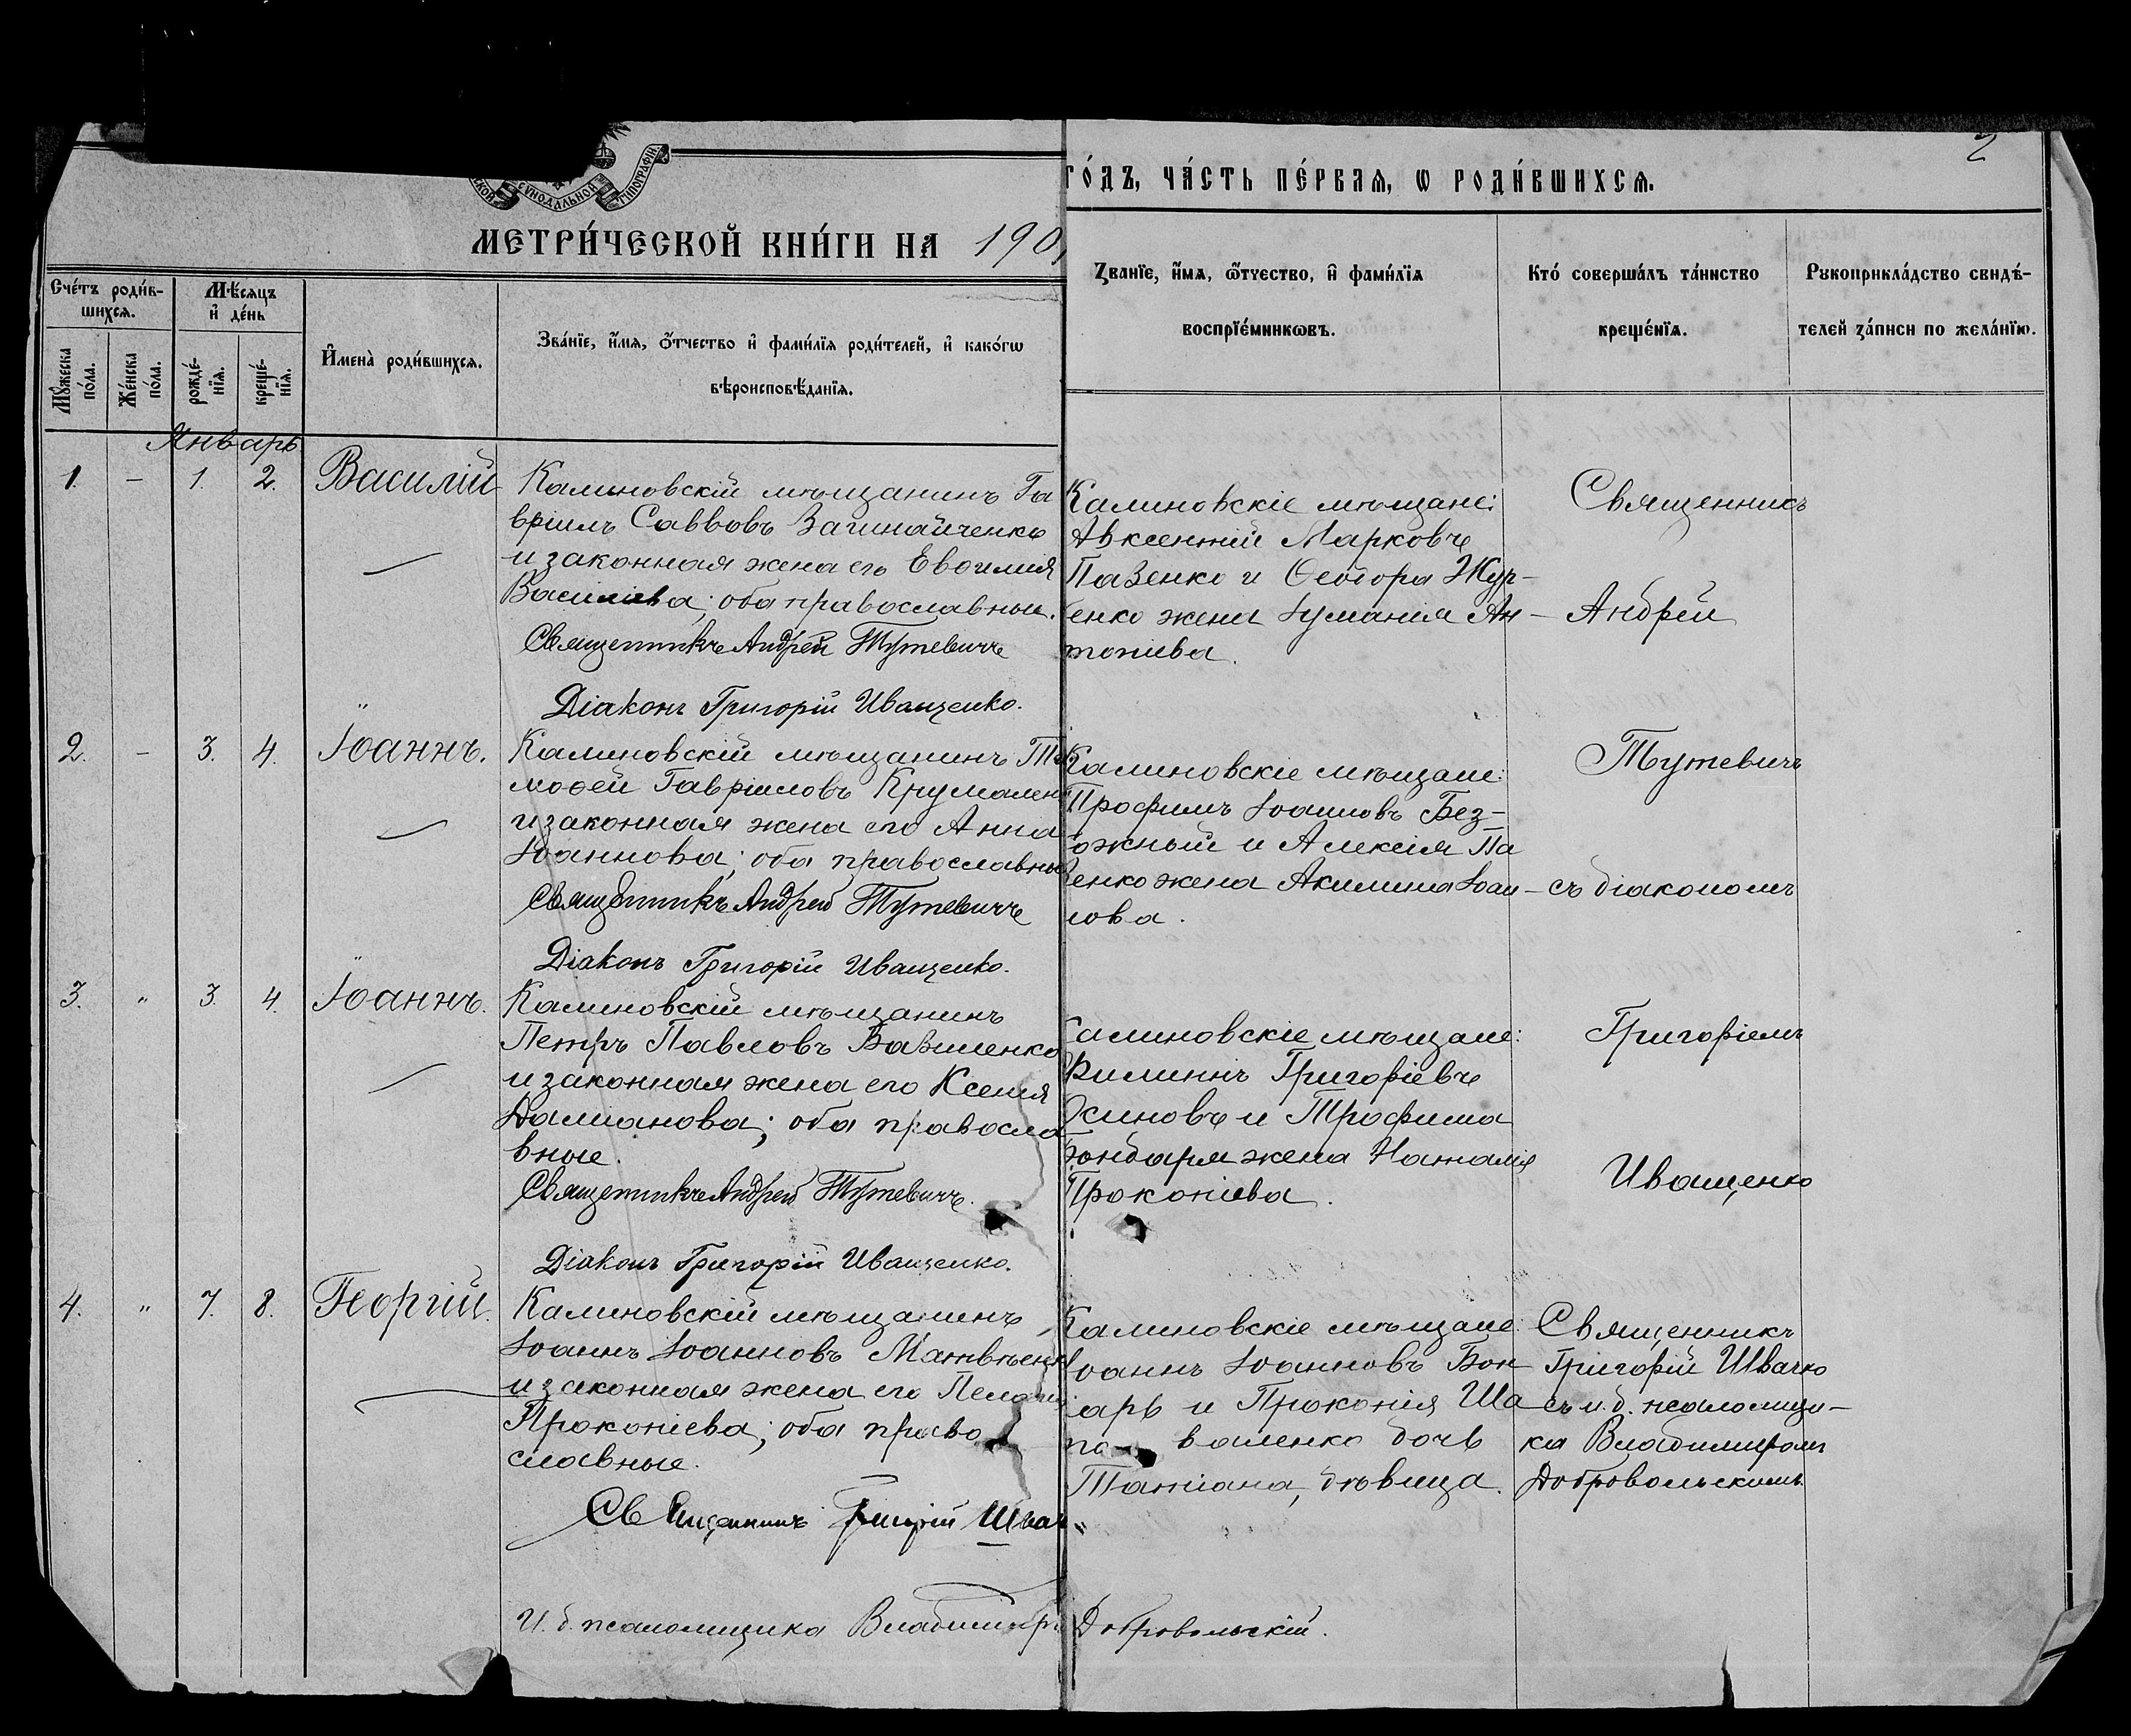 СУНОДАЛЬНОЙ ТІПОГРАФІИ
2
МЕТРИ́ЧЕСКОЙ КНИ́ГИ НА 190
ГО́ДЪ, ЧА́СТЬ ПЕ́РВАЯ, Ѡ РОДИ́ВШИХСЯ.
Сче́тъ роди́в-
шихся.
Мѣ́сяцъ
и де́нь
Мꙋжеска
по́ла.
Же́нска
по́ла.
рожде́-
нїя.
креще́-
нїя.
И҆мена̀ роди́вшихся.
Зва́нїе, и҆́мя, ѻ҆́тчество и҆ фами́лїя роди́телей, и҆ како́гѡ
вѣроисповѣ́данїя.
Зва́нїе, и҆́мя, ѻ҆́тчество, и҆ фами́лїя
воспрїе́мникѡвъ.
Кто́ соверша́лъ та́инство
креще́нїя.
Рꙋкоприкла́дство свидѣ́-
телей за́писи по жела́нїю.
Январь
1. - 1. 2. Василій
Калиновскій мѣщанинъ Га
вріилъ Саввовъ
и законная жена его
Василіева; оба православные.
Священникъ Андрей Тутевичъ
Діаконъ Григорій Иващенко.
Калиновскіе мѣщане:
Авксентій Марковъ
Пазенко и Ѳеодора Жур-
енко жена Ан-
тоніева.
Священникъ
Андрей
2. - 3. 4. Іоаннъ.
Калиновскій мѣщанинъ Ти
моѳей Гавріиловъ
и законная жена его Анна
Іоаннова; оба православные
Священникъ Андрей Тутевичъ
Діаконъ Григорій Иващенко.
Калиновскіе мѣщане:
Трофимъ Іоанновъ Без-
ожный и Алексія Па
зенко жена Акилина Іоан-
нова.
Тутевичъ
съ діакономъ
3. " 3. 4. Іоаннъ.
Калиновскій мѣщанинъ
Петръ Павловъ
и законная жена его Ксенія
Даміанова; оба правосла
вные.
Священникъ Андрей Тутевичъ.
Діаконъ Григорій Иващенко.
Калиновскіе мѣщане:
Филиппъ Григоріевъ
и Трофима
Бондаря жена Наталія
Прокопіева.
Григоріемъ
Иващенко
4. " 7. 8. Георгій.
Калиновскій мѣщанинъ
Іоаннъ Іоанновъ Матвѣенк
и законная жена его Пелагія
Прокопіева; оба право
славные.
Священникъ Григорій Швачк
И. д. псаломщика Владиміръ Добровольскій.
Калиновскіе мѣщане:
Іоаннъ Іоанновъ Бон
арь и Прокопія Ша
по валенко дочь
Татіана, дѣвица.
Священникъ
Григорій Швачко
съ и. д. псаломщи-
ка Владиміромъ
Добровольскимъ.